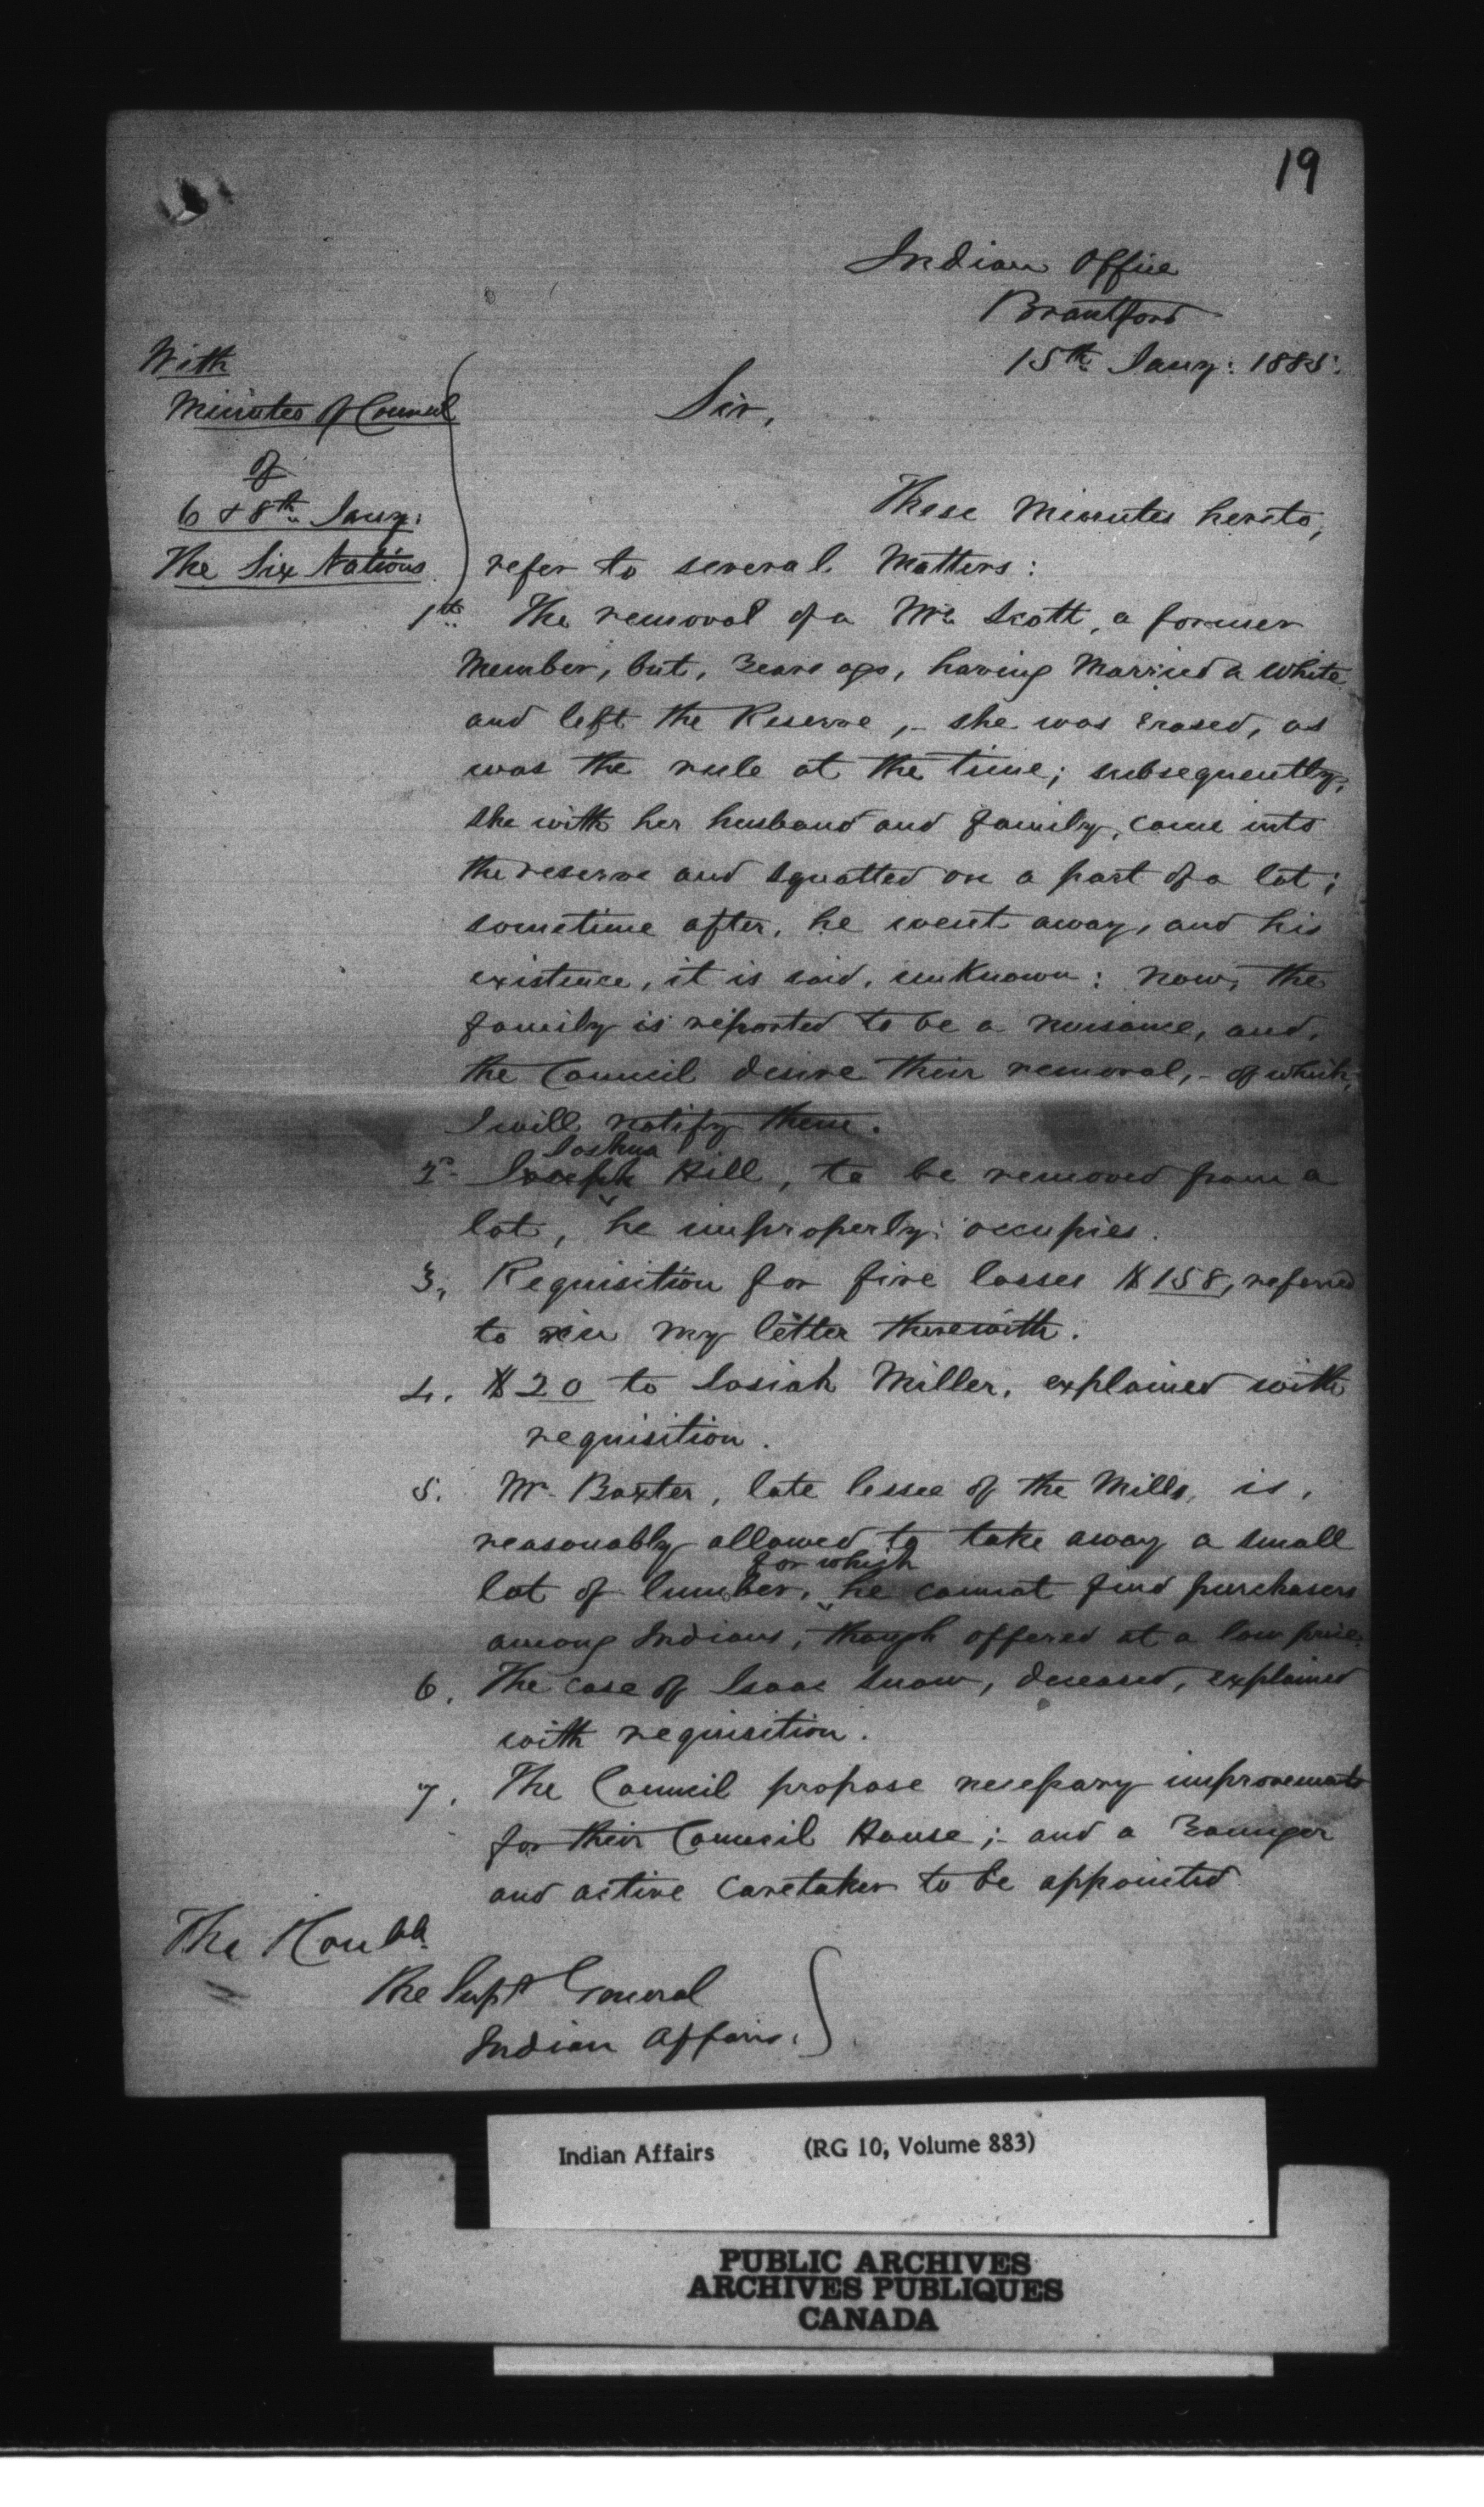 19
Indian Office
Brantford
15th Jany: 1885.
With
Minutes of Council
of
6 & 8th Jany:
The Six Nations
Sir,
These Minutes hereto,
refer to several Matters:
1st The removal of a Mrs Scott, a former
Member, but, Years ago, having Married a White
and left the Reserve, - she was Erased, as
was the rule at the time; subsequently,
she with her husband and family, came into
the reserve and squatted on a part of a lot;
sometime after, he went away, and his
existence, it is said, unknown: now, the
family is reported to be a nuisance, and,
the Council desire their removal, - of which,
I will notify them.
2d Joseph Joshua Hill, to be removed from a
lot, he improperly occupies.
3, Requisition for fire losses $158, referred
to in my letter therewith.
4. $20 to Josiah Miller, explained with
requisition.
5. Mr. Baxter, late lessee of the Mills, is,
reasonably allowed to take away a small
lot of lumber, for which he cannot find purchasers
among Indians, though offered at a low price.
6. The case of Isaac Snow, deceased, explained
with requisition.
7. The Council propose necessary improvements
for their Council House; - and a Younger
and active Caretaker to be appointed
The Honble
the Supt General
Indian Affairs.
Indian Affairs (RG 10, Volume 883)
PUBLIC ARCHIVES
ARCHIVES PUBLIQUES
CANADA